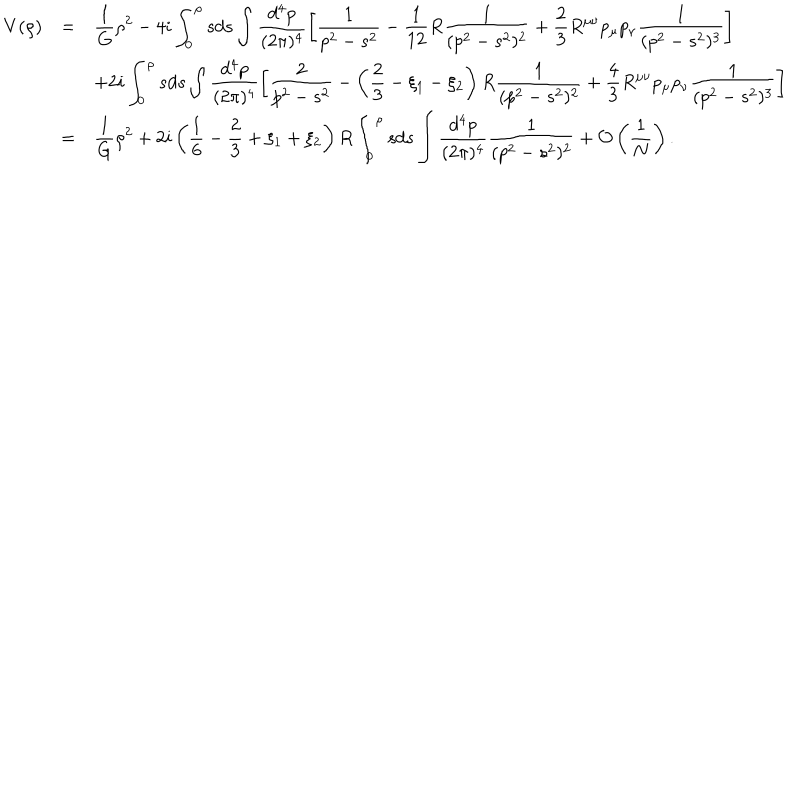 V(ρ) = \frac{1}{G}ρ^2 − 4i ∫_0^ρ sds ∫ \frac{d^4p}{(2π)^4} [ \frac{1}{p^2 − s^2} − \frac{1}{12} R \frac{1}{(p^2 − s^2)^2} + \frac{2}{3} R^{μν} p_μ p_ν \frac{1}{(p^2 − s^2)^3} ]
+2i ∫_0^ρ sds ∫ \frac{d^4p}{(2π)^4} [ \frac{2}{p^2 − s^2} − ( \frac{2}{3} − ξ_1 − ξ_2 ) R \frac{1}{(p^2 − s^2)^2} + \frac{4}{3} R^{μν} p_μ p_ν \frac{1}{(p^2 − s^2)^3} ]
= \frac{1}{G}ρ^2 + 2i ( \frac{1}{6} − \frac{2}{3} + ξ_1 + ξ_2 ) R ∫_0^ρ sds ∫ \frac{d^4p}{(2π)^4} \frac{1}{(p^2 − s^2)^2} + O ( \frac{1}{N} ) .